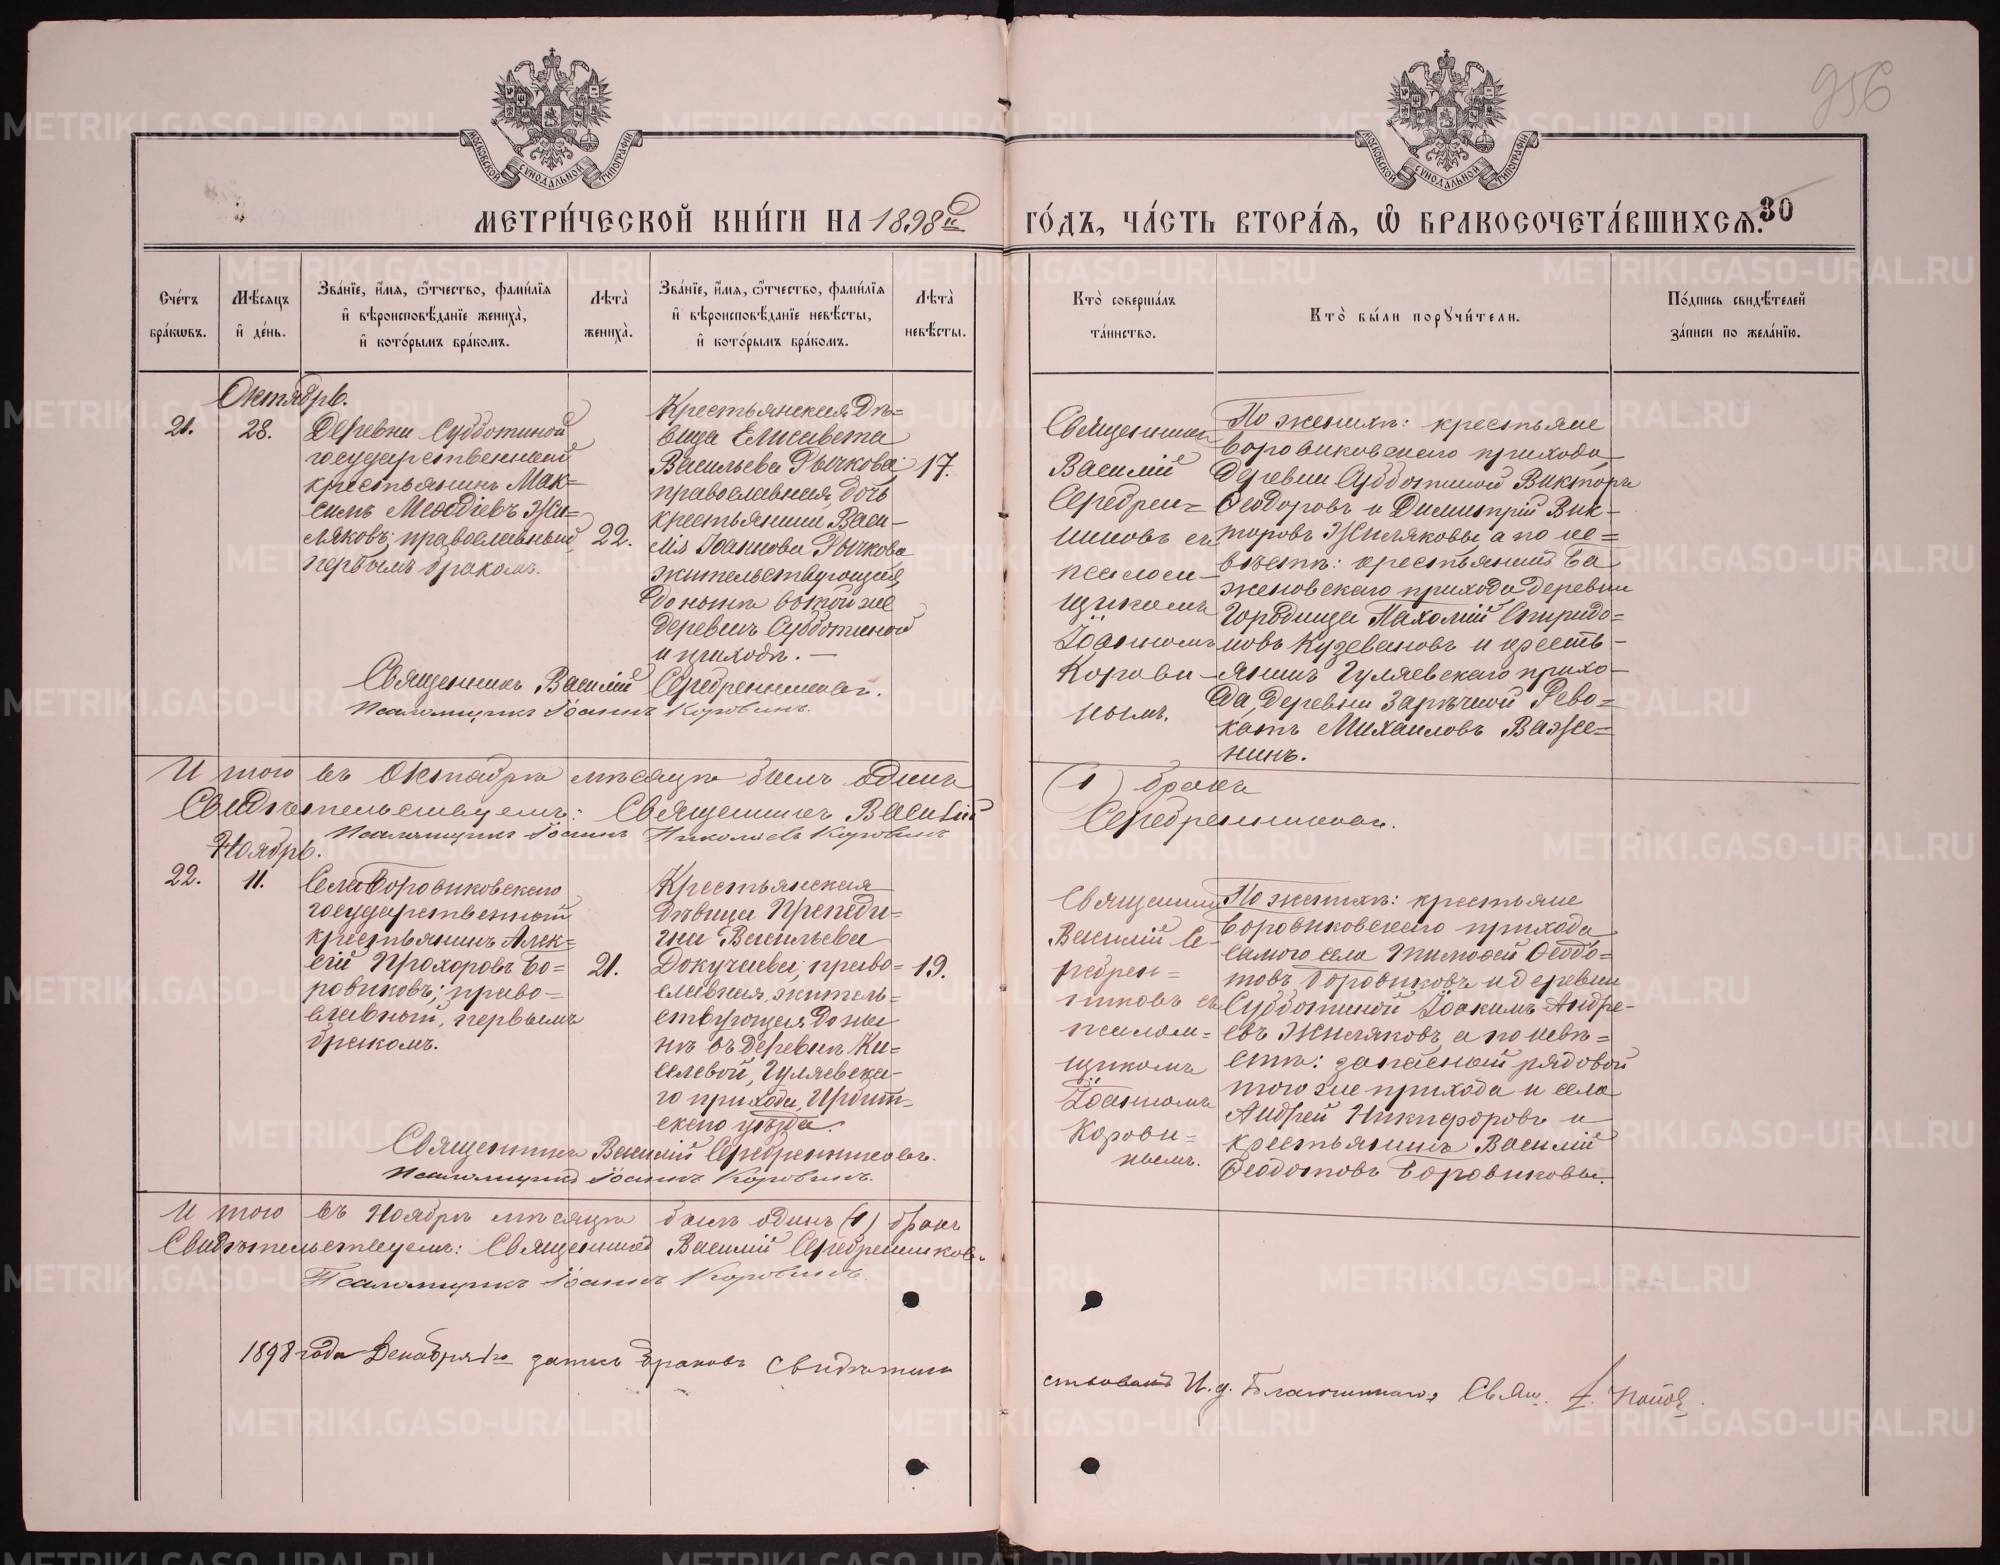 956
МОСКОВСКОЙ СѴНОДАЛЬНОЙ ТИПОГРАФІИ
МОСКОВСКОЙ СѴНОДАЛЬНОЙ ТИПОГРАФІИ
МЕТРИ́ЧЕСКОЙ КНИ́ГИ НА 1898й ГО́ДЪ, ЧА́СТЬ ВТОРА́Я, Ѡ БРАКОСОЧЕТА́ВШИХСЯ.
30
Сче́тъ бра́кѡвъ.
Мѣ́сяцъ и де́нь.
Зва́нїе, и́мя, ѻ́тчество, фами́лїя и вѣроисповѣ́данїе жениха̀, и кото́рымъ бра́комъ.
Лѣта̀ жениха̀.
Зва́нїе, и́мя, ѻ́тчество, фами́лїя и вѣроисповѣ́данїе невѣ́сты, и кото́рымъ бра́комъ.
Лѣта̀ невѣ́сты.
Кто̀ соверша́лъ та́инство.
Кто̀ бы́ли порꙋчи́тели.
По́дпись свидѣ́телей за́писи по жела́нїю.
Октябрь.
21.
28.
Деревни Субботиной
государственный
крестьянинъ Мак=
симъ Меѳодіевъ Жи=
ляковъ; православный,
первымъ бракомъ.
22.
Крестьянская дѣ=
вица Елисавета
Васильева Рычкова;
православная, дочь
крестьянина Васи-
лія Іоаннова Рычкова
жительствующая
до нынѣ въ той же
деревнѣ Субботиной
и приходѣ. —
17.
Священникъ
Василій
Серебрен=
никовъ съ
псалом-
щикомъ
Іоанномъ
Корови-
нымъ.
По женихѣ: крестьяне
Боровиковскаго прихода,
деревни Субботиной Викторъ
Ѳеодоровъ и Димитрій Вик-
торовъ Жиляковы, а по не=
вѣстѣ: крестьянинъ Ба
женовскаго прихода деревни
Городища Пахомій Спиридо=
новъ Кузевановъ и кресть-
янинъ Гуляевскаго прихо-
да, деревни Зарѣчной Рево=
катъ Михаиловъ Важе=
нинъ.
Священникъ Василій Серебренниковъ.
Псаломщикъ Іоаннъ Коровинъ.
И того въ Октябрѣ мѣсяцѣ былъ одинъ (1) бракъ
Свидѣтельствуемъ: Священникъ Василій Серебренниковъ.
Псаломщикъ Іоаннъ Николаевъ Коровинъ
Ноябрь.
22.
11.
Села Боровиковскаго
государственный
крестьянинъ Алек=
сій Прохоровъ Бо=
ровиковъ; право=
славный, первымъ
бракомъ.
21.
Крестьянская
дѣвица Препеди-
гна Васильева
Докучаева; право=
славная, житель=
ствующая до ны
нѣ въ деревнѣ Ки=
селевой, Гуляевска-
го прихода, Ирбит=
скаго уѣзда.
19.
Священникъ
Василій Се-
ребрен=
никовъ съ
псалом=
щикомъ
Іоанномъ
Корови=
нымъ.
По женихѣ: крестьяне
Боровиковскаго прихода
самого села Тимоѳей Ѳеодо=
товъ Боровиковъ и деревни
Субботиной Іоакимъ Андре-
евъ Жиляковъ, а по невѣ=
стѣ: запасный рядовой
того же прихода и села
Андрей Никифоровъ и
крестьянинъ Василій
Ѳеодотовъ Боровиковы.
Священникъ Василій Серебренниковъ.
Псаломщикъ Іоаннъ Коровинъ.
И того въ Ноябрѣ мѣсяцѣ былъ одинъ (1) бракъ
Свидѣтельствуемъ: Священникъ Василій Серебренниковъ
Псаломщикъ Іоаннъ Коровинъ.
1898 года Декабря 1го запись браковъ свидѣтель
ствовалъ И. д. Благочиннаго, Свящ. Поповъ.
METRIKI.GASO-URAL.RU